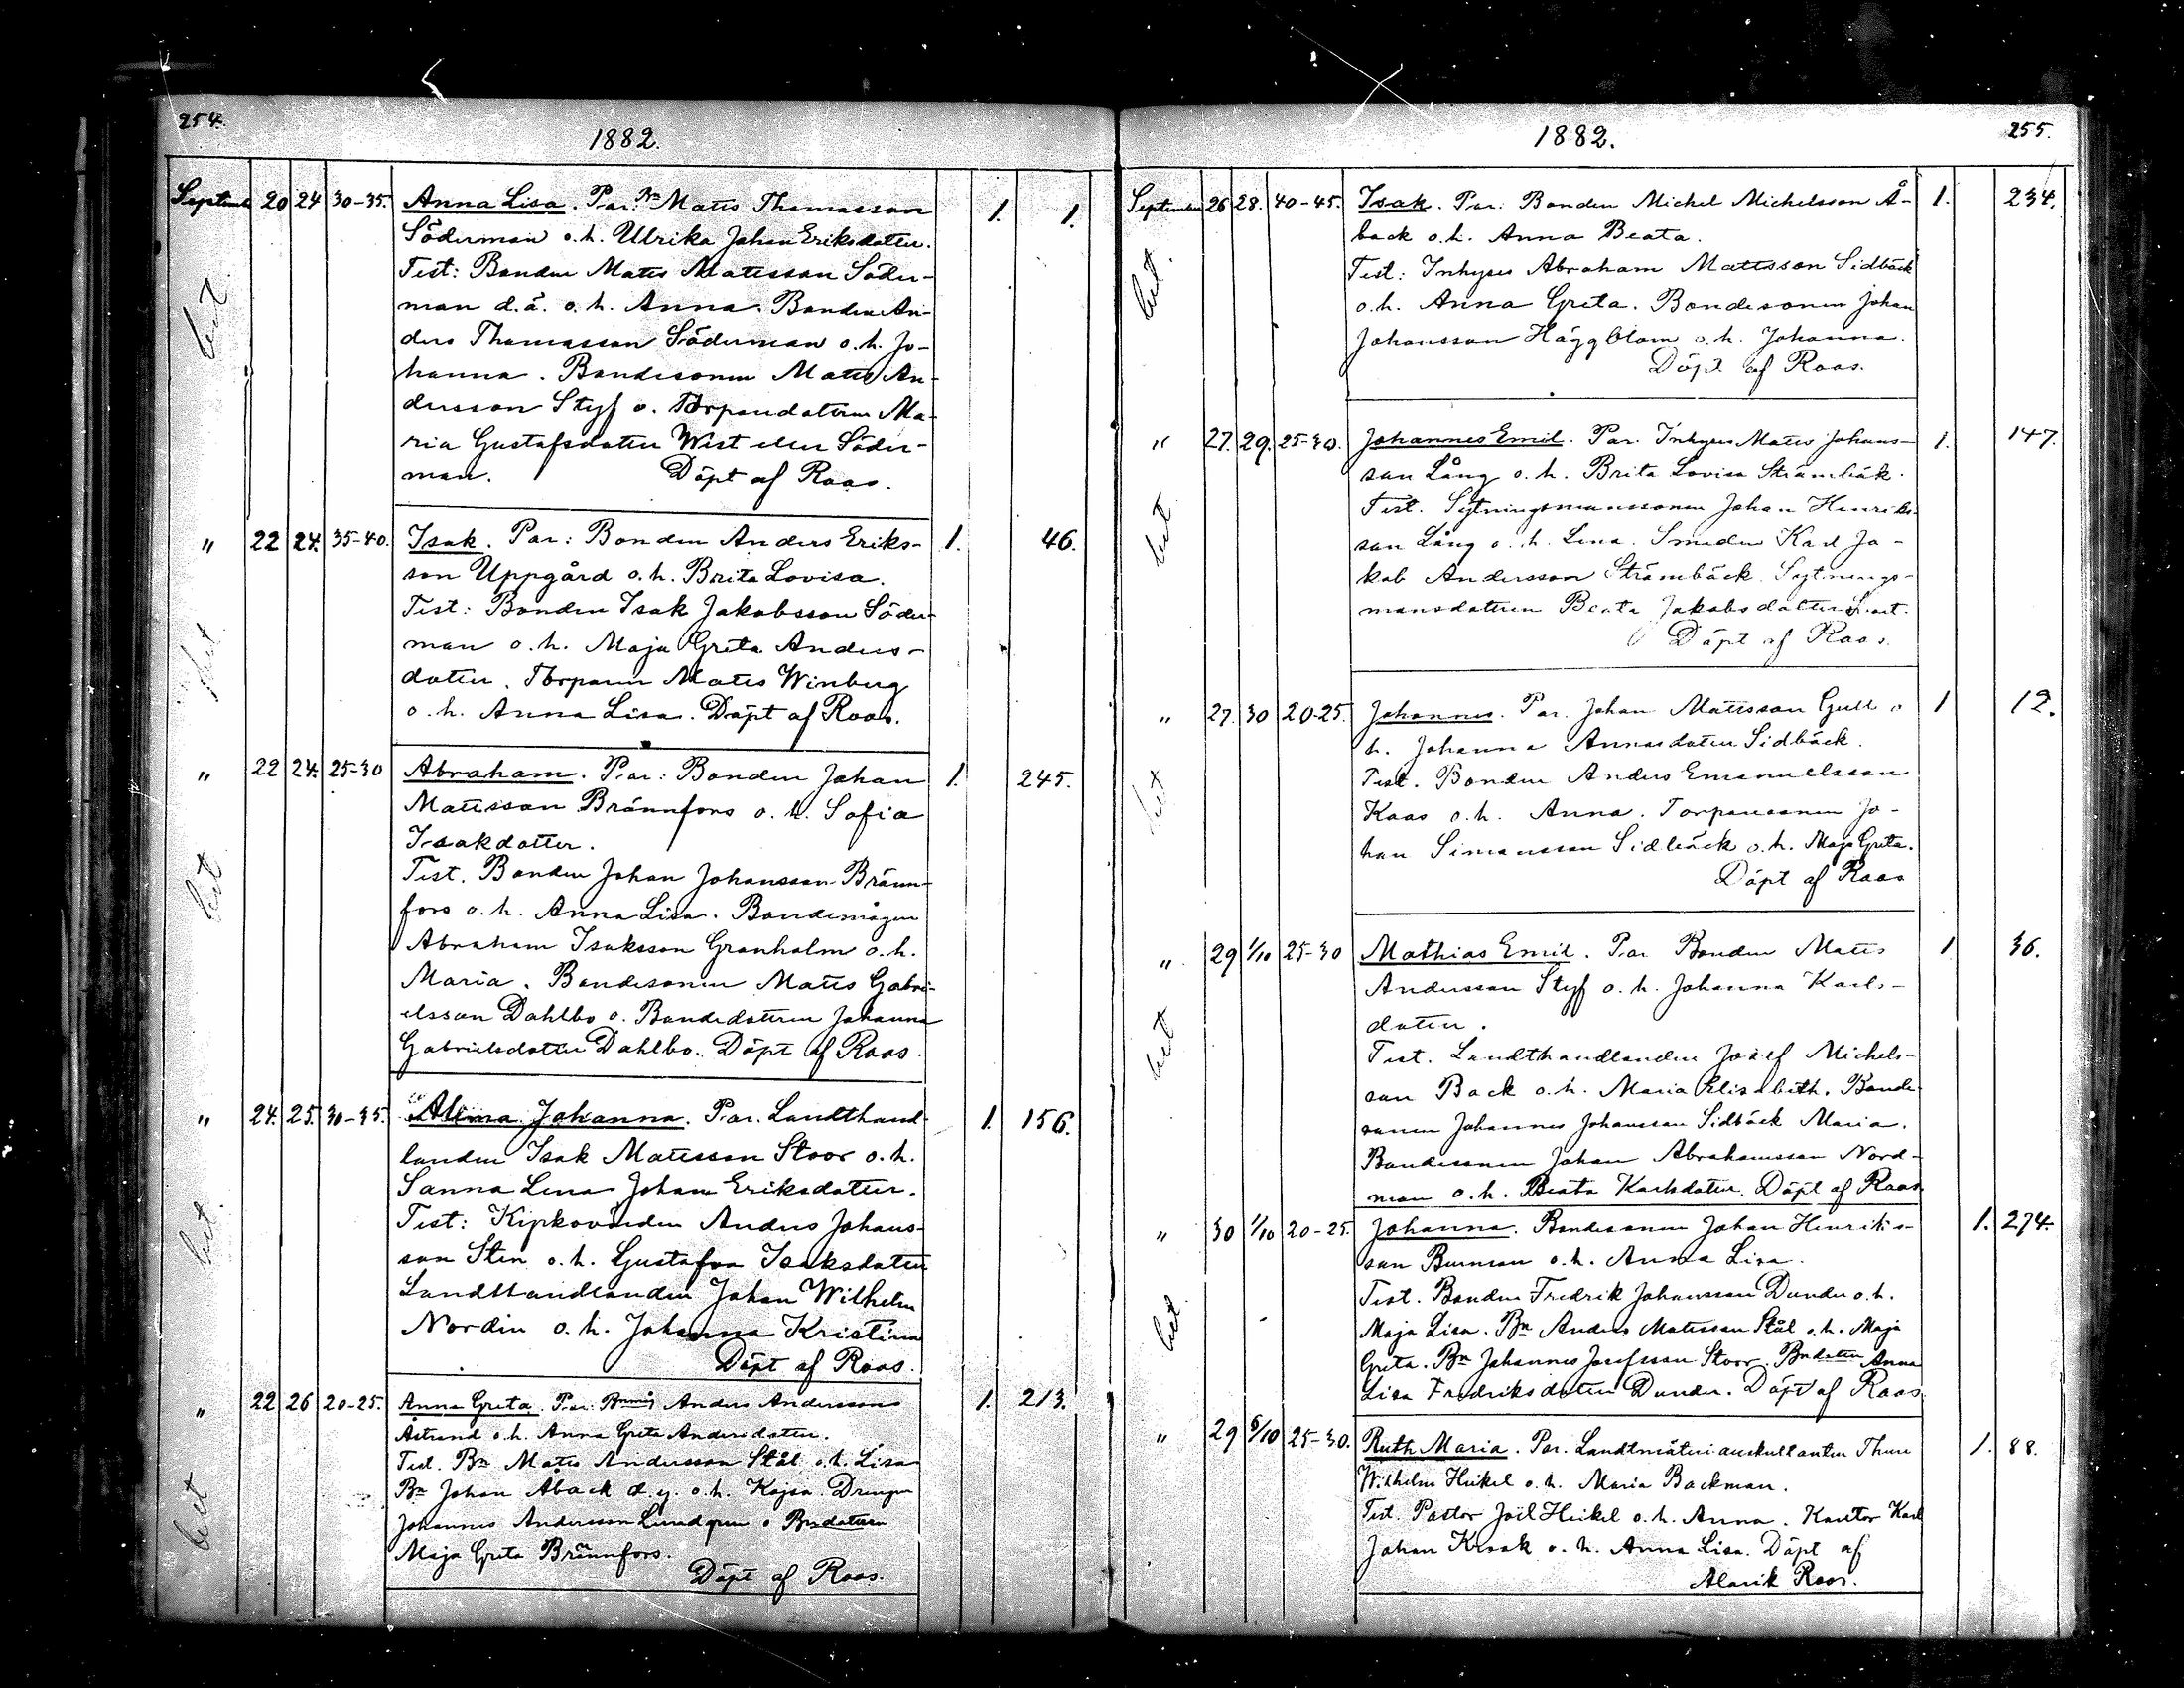 254.
1882.
Septemb 20 24 30-35. Anna Lisa. Par: Bn Matts Thomasson 1. 1.
Söderman o.h. Ulrika Johan Eriksdotter.
Test: Bonden Matts Mattsson Söder-
man d.ä. o.h. Anna. Bonden An-
ders Thomasson Söderman o.h. Jo-
hanna. Bondesonen Matts An-
dersson Styf o. Torparedottern Ma-
ria Gustafsdotter West eller Söder-
man. Döpt af Roos.
" 22 24. 35-40. Isak. Par: Bonden Anders Eriks- 1. 46.
son Uppgård o.h. Brita Lovisa.
Test: Bonden Isak Jakobsson Söder-
man o.h. Maja Greta Anders-
dotter. Torparen Matts Winberg
o.h. Anna Lisa. Döpt af Roos.
" 22 24. 25-30 Abraham. Par: Bonden Johan 1. 245.
Mattsson Brännfors o.h. Sofia
Isakdotter.
Test. Bonden Johan Johansson Bränn-
fors o.h. Anna Lisa. Bondemågen
Abraham Isaksson Granholm o.h.
Maria. Bondesonen Matts Gabri-
elsson Dahlbo o. Bondedottern Johanna
Gabrielsdotter Dahlbo. Döpt af Roos.
" 24. 25. 30-35. Alma Johanna. Par. Landthand- 1. 156.
landen Isak Mattsson Stoor o.h.
Sanna Lena Johan Eriksdotter.
Test: Kyrkovärden Anders Johans-
son Sten o.h. Gustafva Isaksdotter
Landthandlanden Johan Wilhelm
Nordin o.h. Johanna Kristina
Döpt af Roos.
" 22 26 20-25. Anna Greta. Par: Bnmåg Anders Andersson 1. 213.
Åstrand o.h. Anna Greta Andersdotter.
Test. Bn Matts Andersson Stål o.h. Lisa
Bn Johan Åback d.y. o.h. Kajsa. Drengen
Johannes Andersson Lundqven o Bndottern
Maja Greta Brännfors.
Döpt af Roos.
255.
1882.
September 26 28. 40-45. Isak. Par: Bonden Michel Michelsson Å- 1. 234.
back o.h. Anna Beata.
Test: Inhyses Abraham Mattsson Sidbäck
o.h. Anna Greta. Bondesonen Johan
Johansson Häggblom o.h. Johanna.
Döpt af Roos.
" 27. 29. 25-30. Johannes Emil. Par. Inhyses Matts Johans- 1. 147.
son Lång o.h. Brita Lovisa Strömbäck.
Test. Sytningsmanssonen Johan Henriks-
son Lång o.h. Lena. Smeden Karl Ja-
kob Andersson Strömbäck. Sytnings-
mansdottern Beata Jakobsdotter
Döpt af Roos.
" 27. 30 20-25. Johannes. Par. Johan Mattsson Gull o 1 12.
h. Johanna Annasdotter Sidbäck.
Test. Bonden Anders Emanuelsson
Kaas o.h. Anna. Torparesonen Jo-
han Simonsson Sidbäck o.h. Maja Greta.
Döpt af Roos
" 29 1/10 25-30 Mathias Emil. Par Bonden Matts 1 36.
Andersson Styf o.h. Johanna Karls-
dotter.
Test. Landthandlanden Josef Michels-
son Back o.h. Maria Elisabeth. Bonde-
sonen Johannes Johansson Sidbäck Maria.
Bondesonen Johan Abrahamsson Nord-
man o.h. Beata Karlsdotter. Döpt af Roos
" 30 1/10 20-25. Johanna. Bondesonen Johan Henriks- 1. 274.
son Burman o.h. Anna Lisa.
Test. Bonden Fredrik Johansson Dunder o.h.
Maja Lisa. Bn Anders Mattsson Stål o.h. Maja
Greta. Bn Johannes Josefsson Stoor. Bndottern Anna
Lisa Fredriksdotter Dunder. Döpt af Roos
" 29 6/10 25-30. Ruth Maria. Par. Landtmäteriauskultanten Thure 1. 88.
Wilhelm Heikel o.h. Maria Backman.
Test. Pastor Joël Heikel o.h. Anna. Kantor Karl
Johan Krook o.h. Anna Lisa. Döpt af
Alarik Roos.